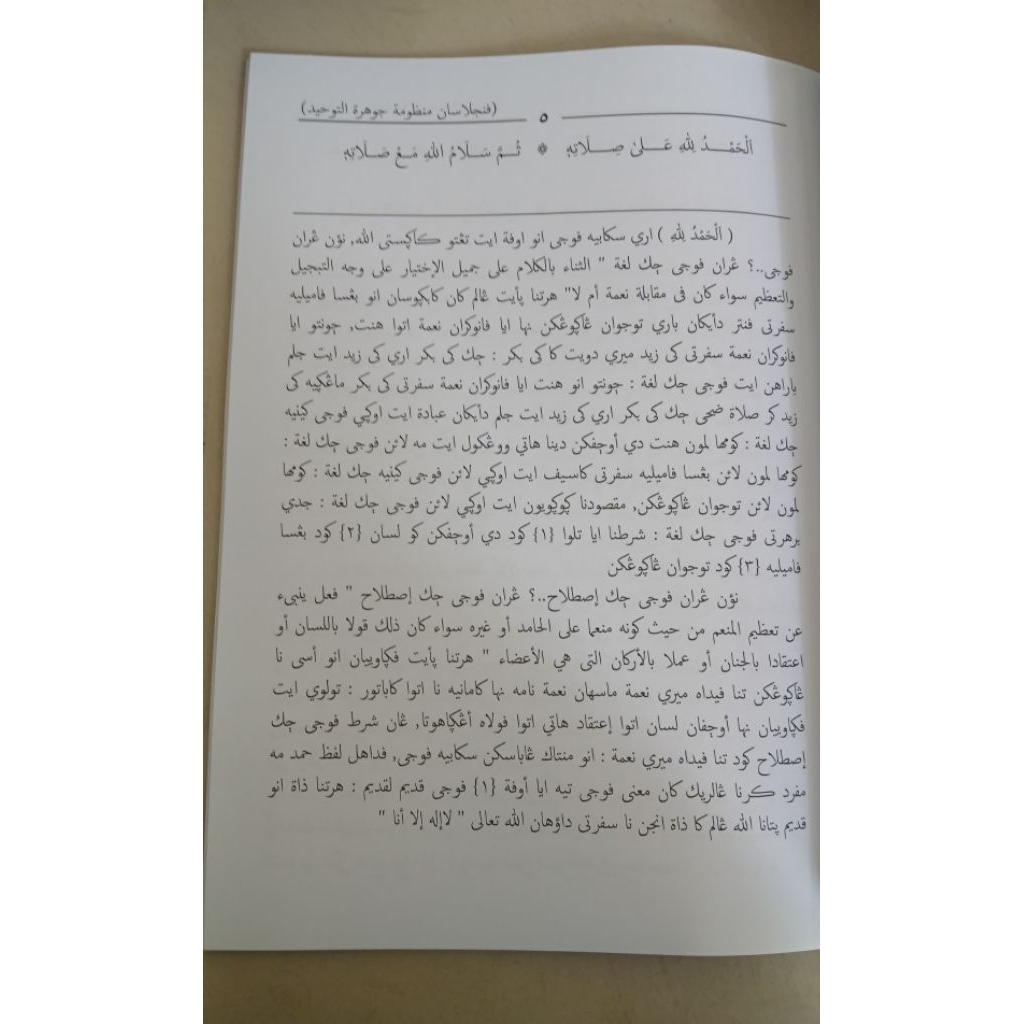 (فنجلاسان منظومة جوهرة التوحيد)
٥
اَلْحَمْدُ لِلّٰهِ عَلىٰ صِلَاتِهٖ ۞ ثُمَّ سَلَامُ اللهِ مَعْ صَلَاتِهٖ
( اَلْحَمْدُ لِلّٰهِ ) اري سكابيه فوجى انو اوفة ايت تڠتو كاݘستى الله, نؤن ڠران
فوجى..؟ ڠران فوجى ݘك لغة " الثناء بالكلام على جميل الإختيار على وجه التبجيل
والتعظيم سواء كان فى مقابلة نعمة أم لا" هرتنا ڽأيت ڠالم كان كابݢوسان انو بڠسا فاميليه
سفرتى فنتر دأيكان باري توجوان ڠاݢوڠكن نها ايا فانوكران نعمة اتوا هنت, ݘونتو ايا
فانوكران نعمة سفرتى كى زيد ميري دويت كا كى بكر : ݘك كى بكر اري كى زيد ايت جلم
باراهن ايت فوجى ݘك لغة : ݘونتو انو هنت ايا فانوكران نعمة سفرتى كى بكر ماڠݢيه كى
زيد كر صلاة ضحى ݘك كى بكر اري كى زيد ايت جلم دأيكان عبادة ايت اوݢي فوجى كينيه
ݘك لغة : كومها لمون هنت دي أوݘفكن دينا هاتي ووڠكول ايت مه لائن فوجى ݘك لغة :
كومها لمون لائن بڠسا فاميليه سفرتى كاسيف ايت اوݢي لائن فوجى كينيه ݘك لغة : كومها
لمون لائن توجوان ڠاݢوڠكن, مقصودنا ݢوݢويون ايت اوݢي لائن فوجى ݘك لغة : جدي
برهرتى فوجى ݘك لغة : شرطنا ايا تلوا {١} كود دي أوݘفكن كو لسان {٢} كود بڠسا
فاميليه {٣} كود توجوان ڠاݢوڠكن
نؤن ڠران فوجى ݘك إصطلاح..؟ ڠران فوجى ݘك إصطلاح " فعل ينبىء
عن تعظيم المنعم من حيث كونه منعما على الحامد أو غيره سواء كان ذلك قولا باللسان أو
اعتقادا بالجنان أو عملا بالأركان التى هي الأعضاء " هرتنا ڽأيت فݢاوييان انو أسى نا
ڠاݢوڠكن تنا فيداه ميري نعمة ماسهان نعمة نامه نها كامانيه نا اتوا كاباتور : تولوي ايت
فݢاوييان نها أوݘفان لسان اتوا إعتقاد هاتي اتوا فولاه أڠݢاهوتا, ڠان شرط فوجى ݘك
إصطلاح كود تنا فيداه ميري نعمة : انو منتاك ڠاباسكن سكابيه فوجى, فداهل لفظ حمد مه
مفرد كرنا ڠالريك كان معنى فوجى تيه ايا أوفة {١} فوجى قديم لقديم : هرتنا ذاة انو
قديم ڽتانا الله ڠالم كا ذاة انجن نا سفرتى داؤهان الله تعالى " لاإله إلا أنا "